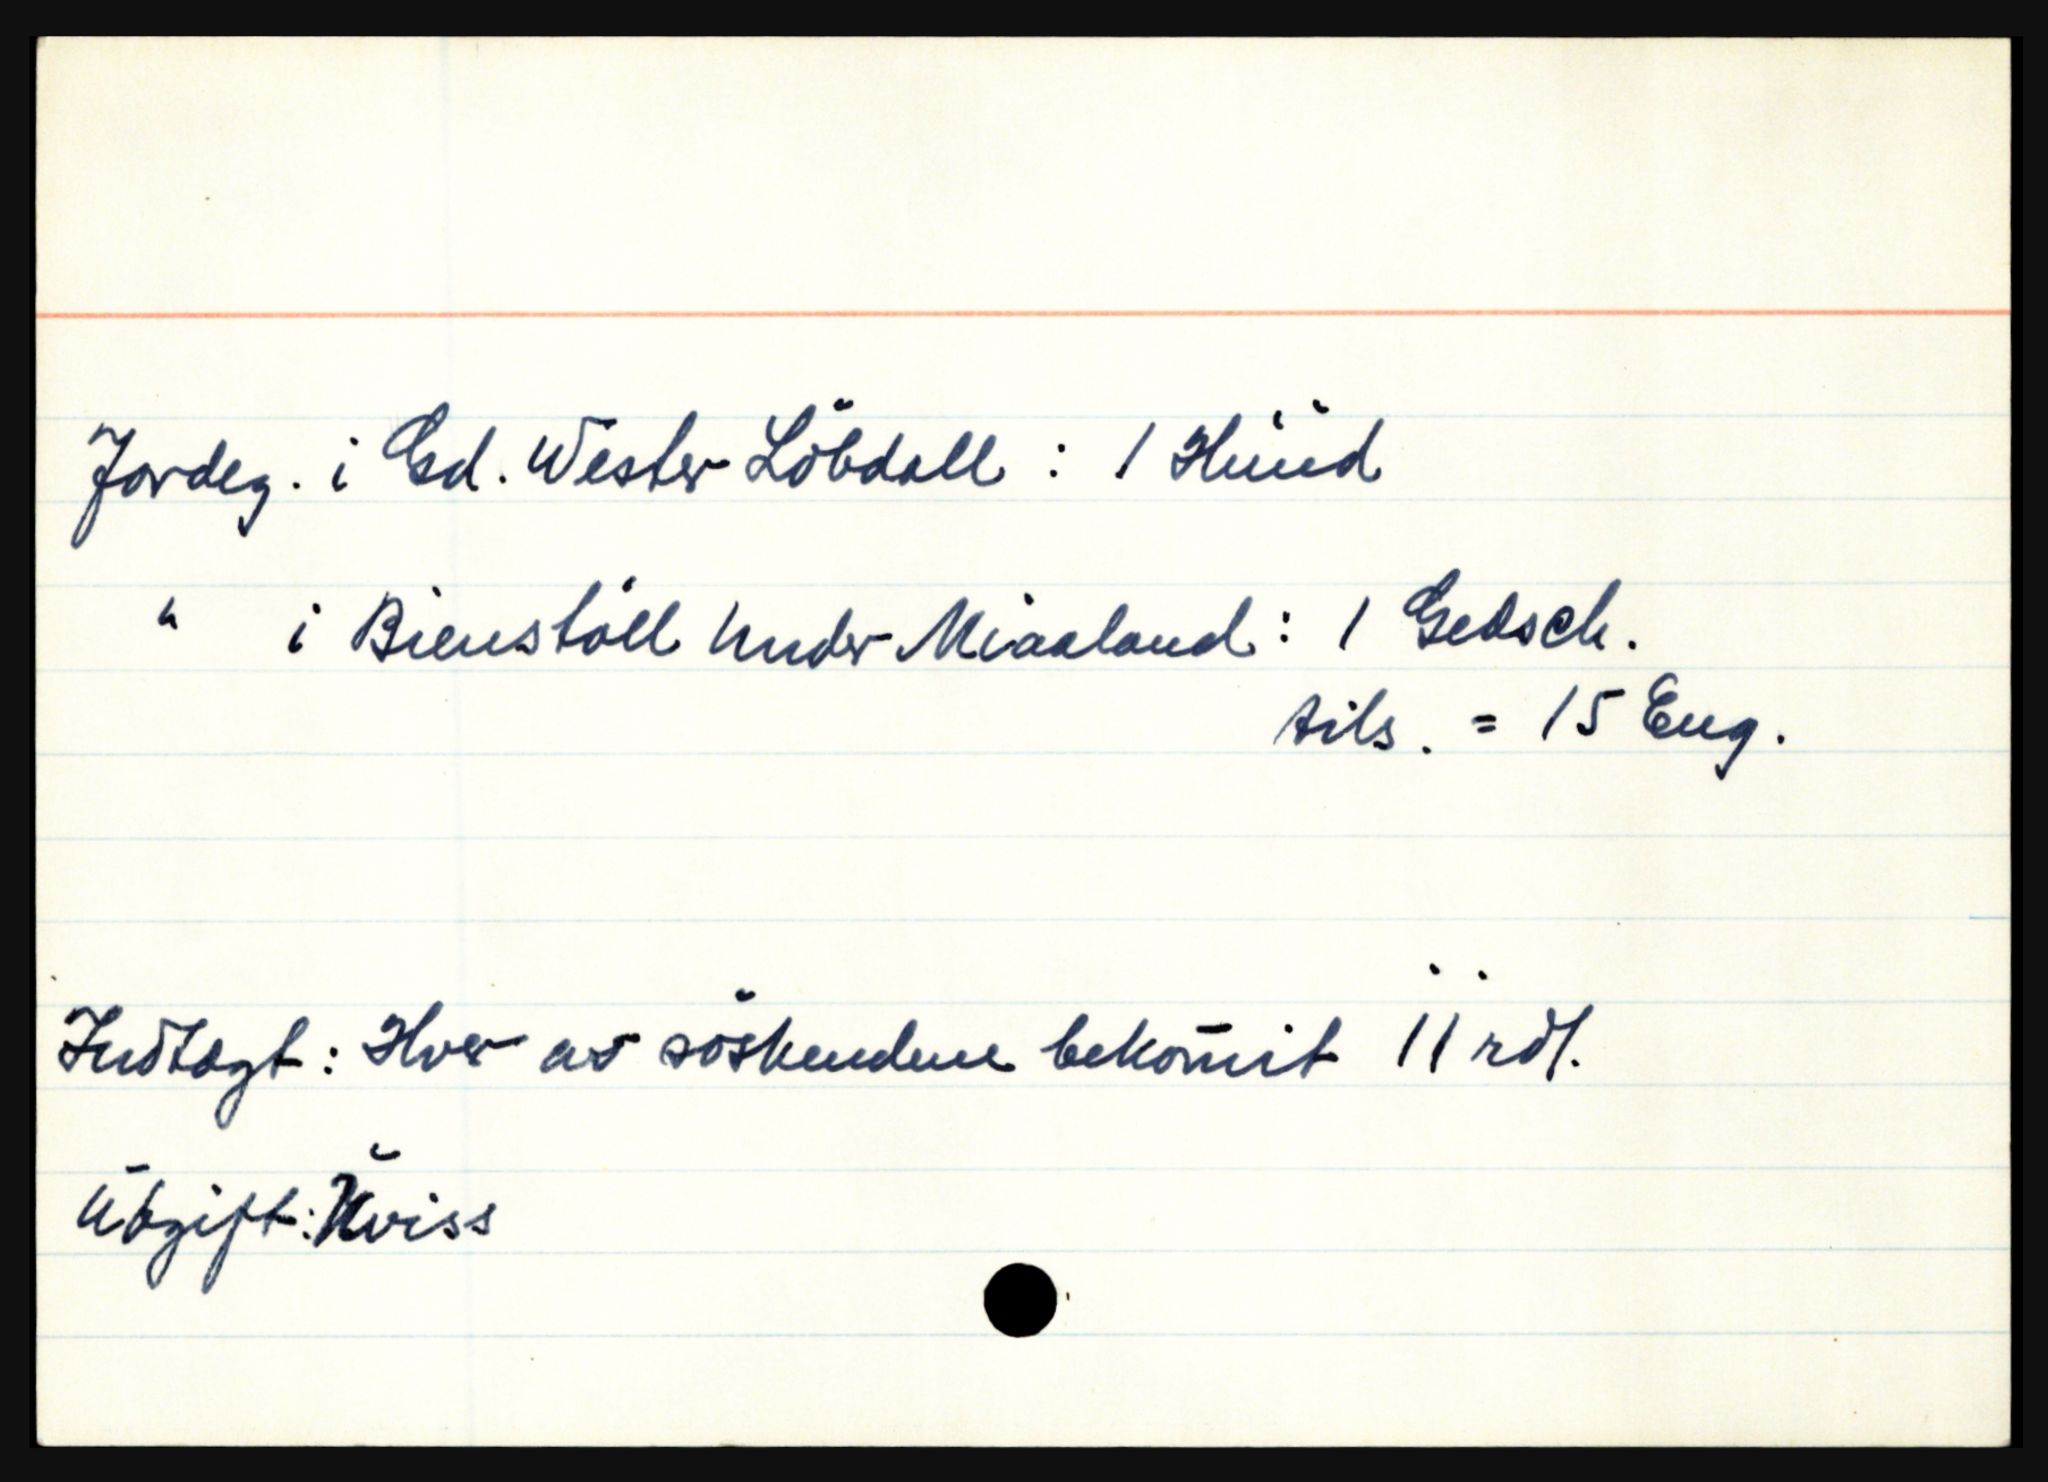 Jordeg. i Gd. Wester Löbdall : 1 Húúd
" i Bienstöll Under Miaaland : 1 Gedsch.
tils. = 15 Eng.
Indtægt : Hver av söskendene bekom̄it 11 rdl.
Utgift : Uviss